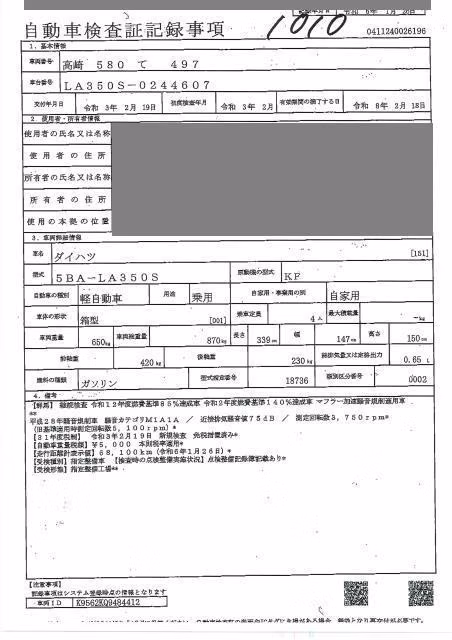 自動車検査証記録事項
1010
0411240026196
1. 基本情報
車両番号 高崎 580 て 497
車台番号 LA350S-0244607
交付年月日 令和 3年 2月 19日 初度検査年月 令和 3年 2月 有効期間の満了する日 令和 8年 2月 18日
2. 使用者・所有者情報
使用者の氏名又は名称
使用者の住所
所有者の氏名又は名称
所有者の住所
使用の本拠の位置
3. 車両詳細情報
車名 ダイハツ [151]
型式 5BA-LA350S 原動機の型式 KF
自動車の種別 軽自動車 用途 乗用 自家用・事業用の別 自家用
車体の形状 箱型 [001] 乗車定員 4人 最大積載量 -kg
車両重量 650kg 車両総重量 870kg 長さ 339cm 幅 147cm 高さ 150cm
前軸重 420kg 後軸重 230kg 総排気量又は定格出力 0.65 L
燃料の種類 ガソリン 型式指定番号 18736 類別区分番号 0002
4. 備考
【群馬】 継続検査 令和12年度燃費基準85%達成車 令和2年度燃費基準140%達成車 マフラー加速騒音規制適用車
**
平成28年騒音規制車 騒音カテゴリM1A1A / 近接排気騒音値75dB / 測定回転数3,750rpm*
(旧基準適用時測定回転数5,100rpm)*
【31年度税制】 令和3年2月19日 新規検査 免税措置済み*
【自動車重量税額】 ¥5,000 本則税率適用*
【走行距離計表示値】 68,100km (令和6年1月26日)*
【受検種別】指定整備車 【検査時の点検整備実施状況】点検整備記録簿記載あり*
【受検形態】指定整備工場**
【注意事項】
記録事項はシステム登録時点の情報となります
車両ID K9562KQ9484412